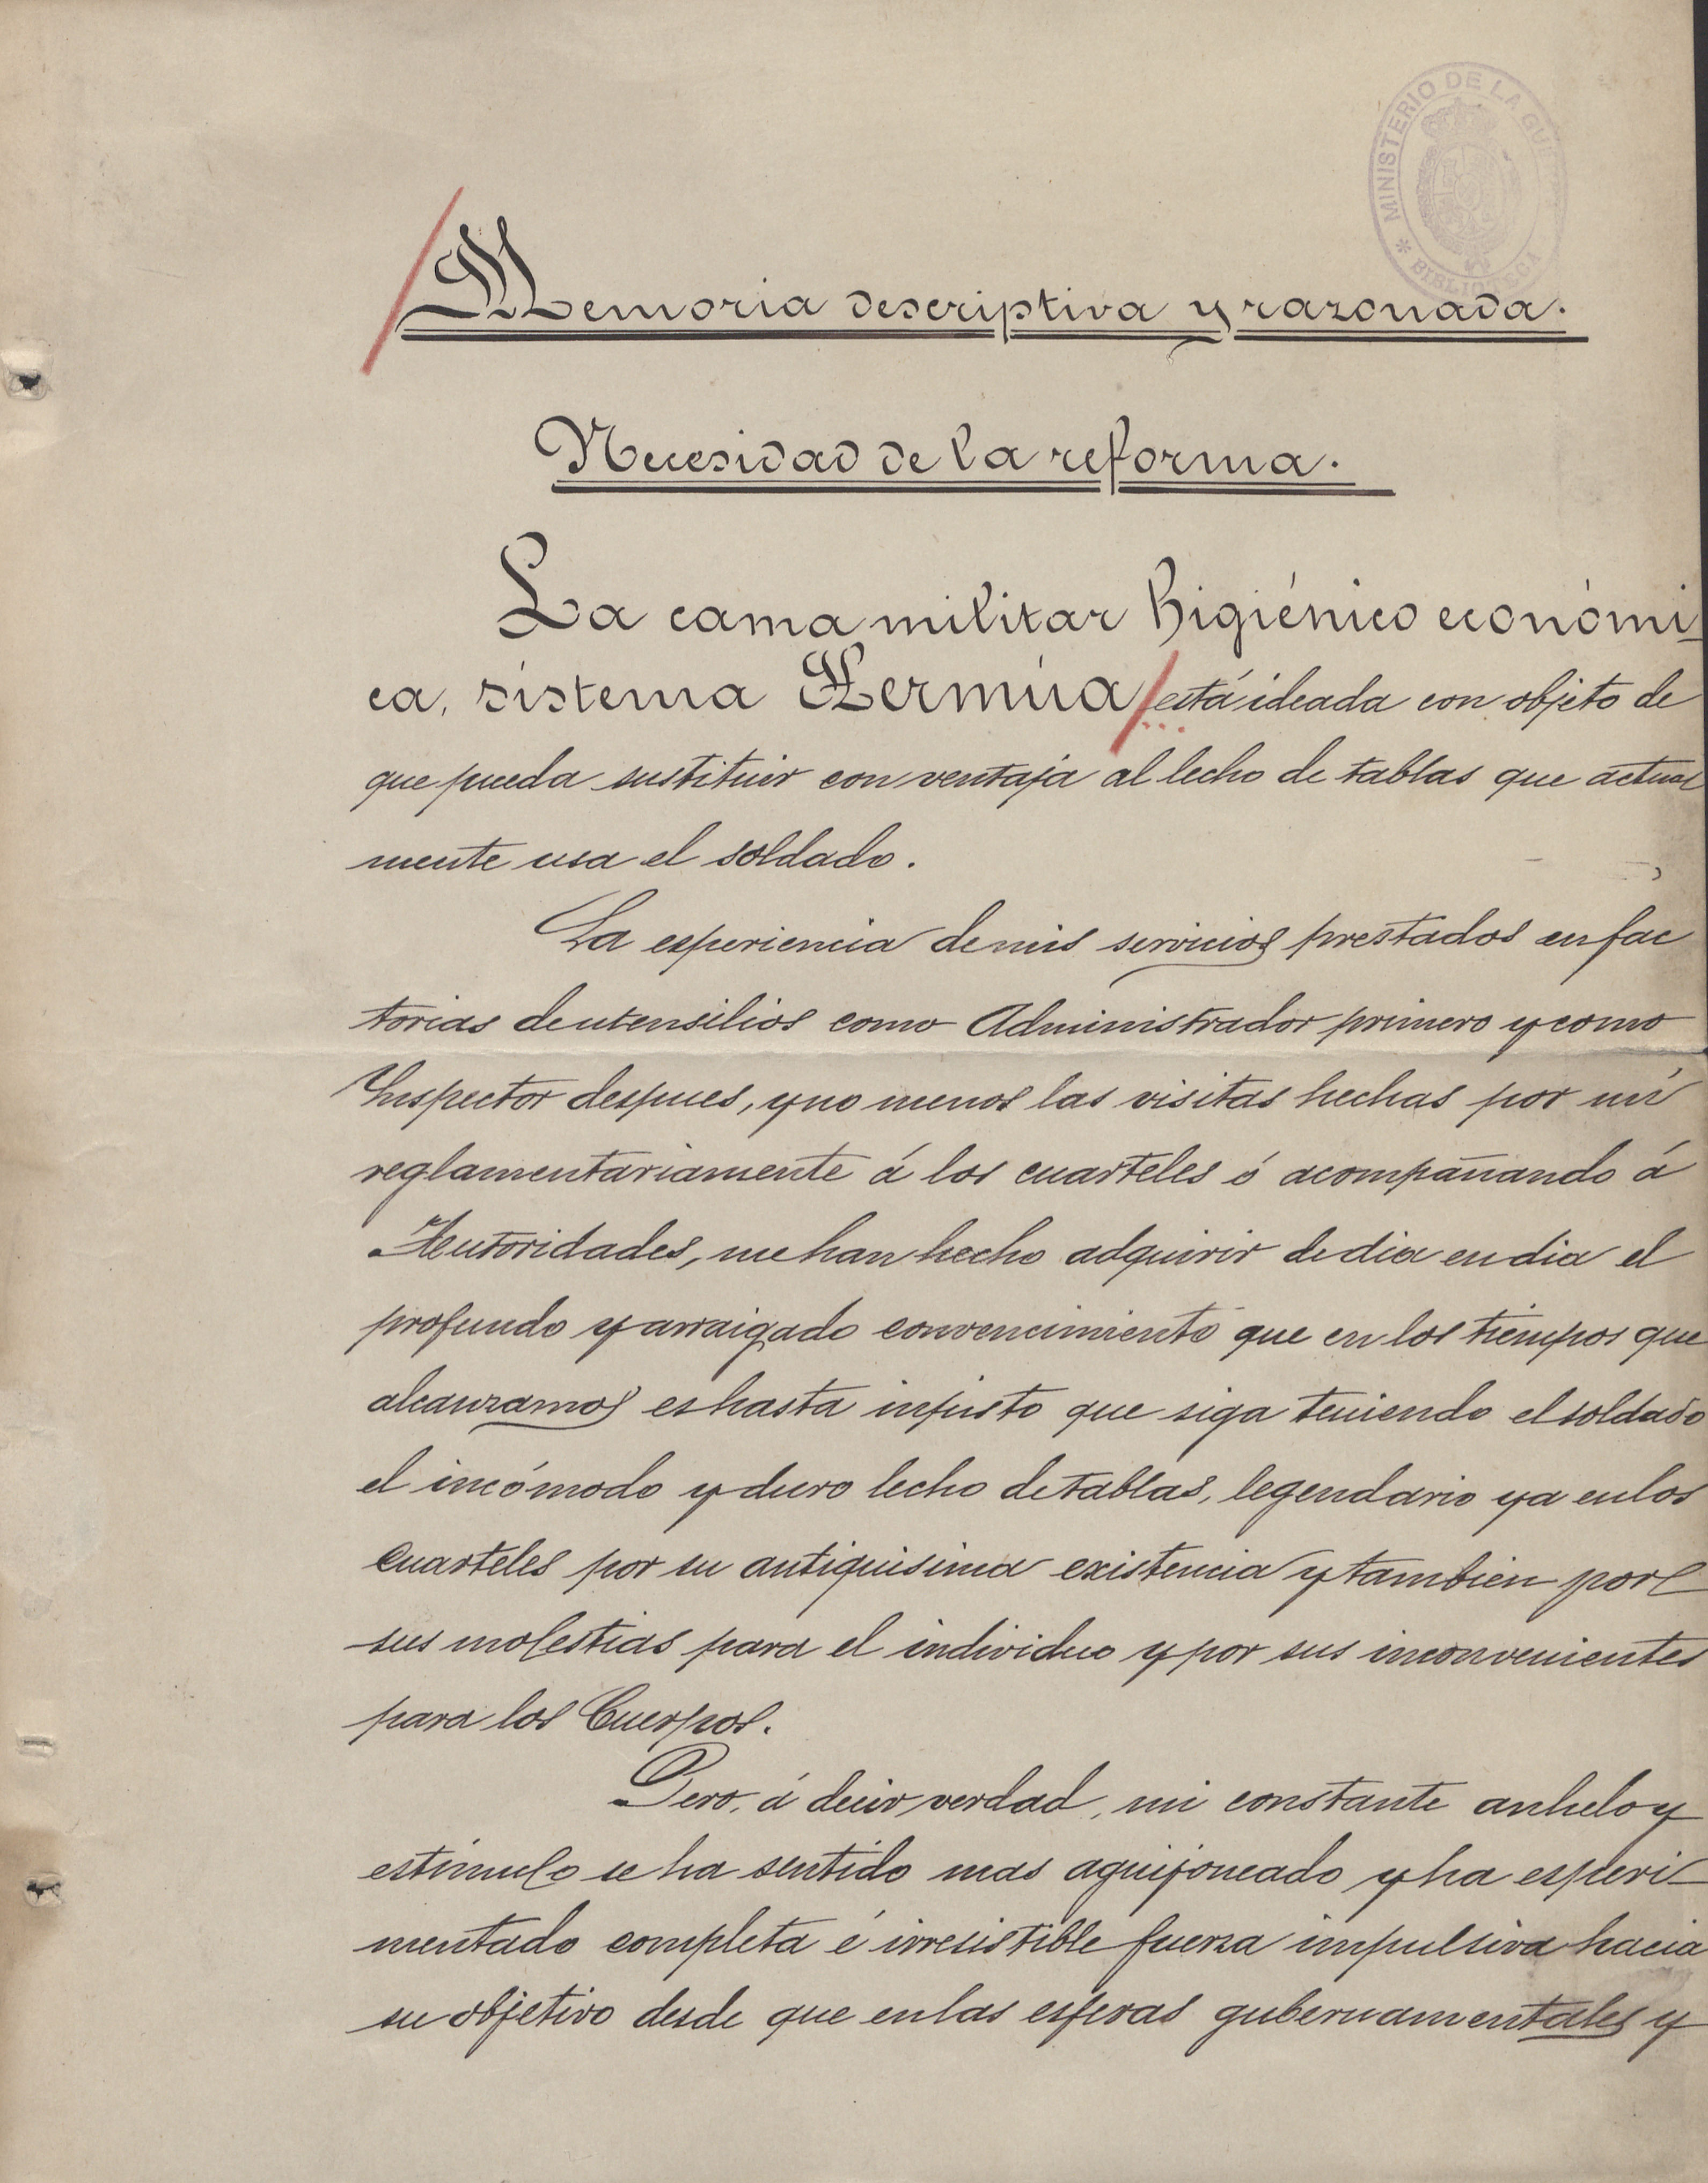 MINISTERIO DE LA GUE
BIBLIOTECA
Memoria descriptiva y razonada.
Necesidad de la reforma.
La cama militar higiénico económi-
ca, sistema Hermúa está ideada con objeto de
que pueda sustituir con ventaja al lecho de tablas que actual
mente usa el soldado.
La esperiencia de mis servicios prestados en fac
torias de utensilios como Administrador primero y como
Inspector despues, y no menos las visitas hechas por mi
reglamentariamente á los cuarteles ó acompañando á
Autoridades, me han hecho adquirir de dia en dia el
profundo y arraigado convencimiento que en los tiempos que
alcanzamos es hasta injusto que siga teniendo el soldado
el incómodo y duro lecho de tablas, legendario ya en los
cuarteles por su antiquisima existencia y tambien por
sus molestias para el individuo y por sus inconvenientes
para los Cuerpos.
Pero, á decir verdad, mi constante anhelo y
estímulo se ha sentido mas aguijoneado y ha esperi-
mentado completa é irresistible fuerza impulsiva hacia
su objetivo desde que en las esferas gubernamentales y